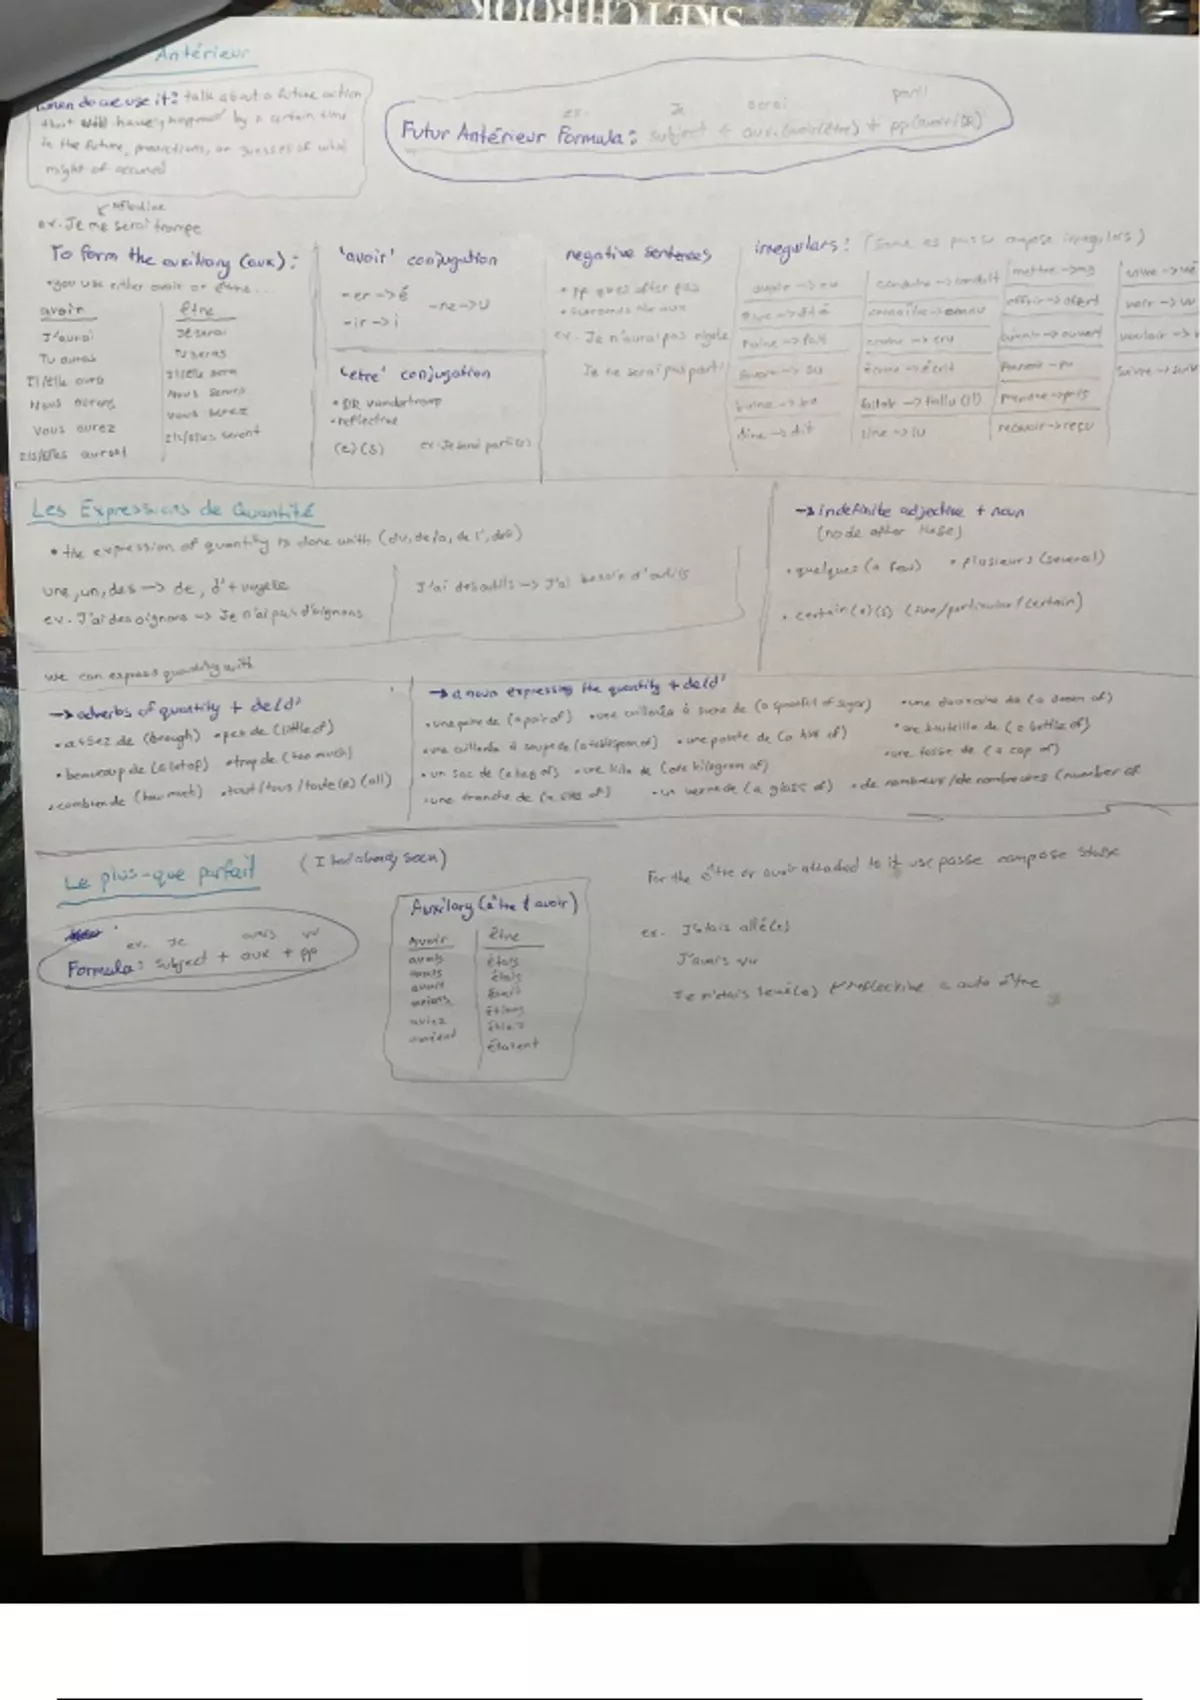 SKETCHBOOK
Antérieur
when do we use it: talk about a future action
that will have happened by a certain time
in the future, predictions, or guesses of what
might of occured
ex. Je serai parti
Futur Antérieur Formula: subject + aux.(avoir/être) + pp(avoir/DR)
reflective
ex. Je me serai trompe
To form the auxiliary (aux):
• you use either avoir or être...
avoir être
J'aurai Je serai
Tu auras Tu seras
Il/elle aura Il/elle sera
Nous aurons Nous serons
Vous aurez Vous serez
Ils/Elles auront Ils/elles seront
'avoir' conjugation
-er -> é
-re -> u
-ir -> i
'etre' conjugation
• DR vandertramp
• reflective
(e)(s) ex. Je serai parti(e)
negative sentences
• pp goes after pas
• surrounds the aux
ex. Je n'aurai pas rigolé
Je ne serai pas parti
irregulars: (same as passe compose irregulars)
avoir -> eu
être -> été
faire -> fait
savoir -> su
boire -> bu
dire -> dit
conduire -> conduit
connaître -> connu
croire -> cru
écrire -> écrit
falloir -> fallu (il)
lire -> lu
mettre -> mis
offrir -> offert
ouvrir -> ouvert
pouvoir - pu
prendre -> pris
recevoir -> reçu
voir -> vu
vouloir ->
suivre -> suivi
Les Expressions de Quantité
• the expression of quantity is done with (du, de la, de l', des)
une, un, des -> de, d' + voyelle
ex. J'ai des oignons -> Je n'ai pas d'oignons
J'ai des outils -> J'ai besoin d'outils
-> indefinite adjective + noun
(no de after these)
• quelques (a few) • plusieurs (several)
• certain(e)(s) (sure/particular/certain)
we can express quantity with
-> adverbs of quantity + de(d'
• assez de (enough) • peu de (little of)
• beaucoup de (a lot of) • trop de (too much)
• combien de (how much) • tout/tous/toute(s) (all)
-> a noun expressing the quantity + de(d'
• une paire de (a pair of) • une cuillerée à sucre de (a spoonful of sugar) • une douzaine de (a dozen of)
• une cuillerée à soupe de (a tablespoon of) • une boîte de (a box of) • une bouteille de (a bottle of)
• un sac de (a bag of) • une kilo de (one kilogram of) • une tasse de (a cup of)
• une tranche de (a slice of) • un verre de (a glass of) • de nombreux/de nombreuses (number of
Le plus-que parfait (I had already seen)
ex. Je avais vu
Formula: subject + aux + pp
Auxilary (être & avoir)
Avoir être
avais étais
avais étais
avait était
avions étions
aviez étiez
avaient étaient
For the être or avoir attached to it use passe compose
ex. J'étais allé(e)
J'avais vu
Je m'étais levé(e) reflective = auto être